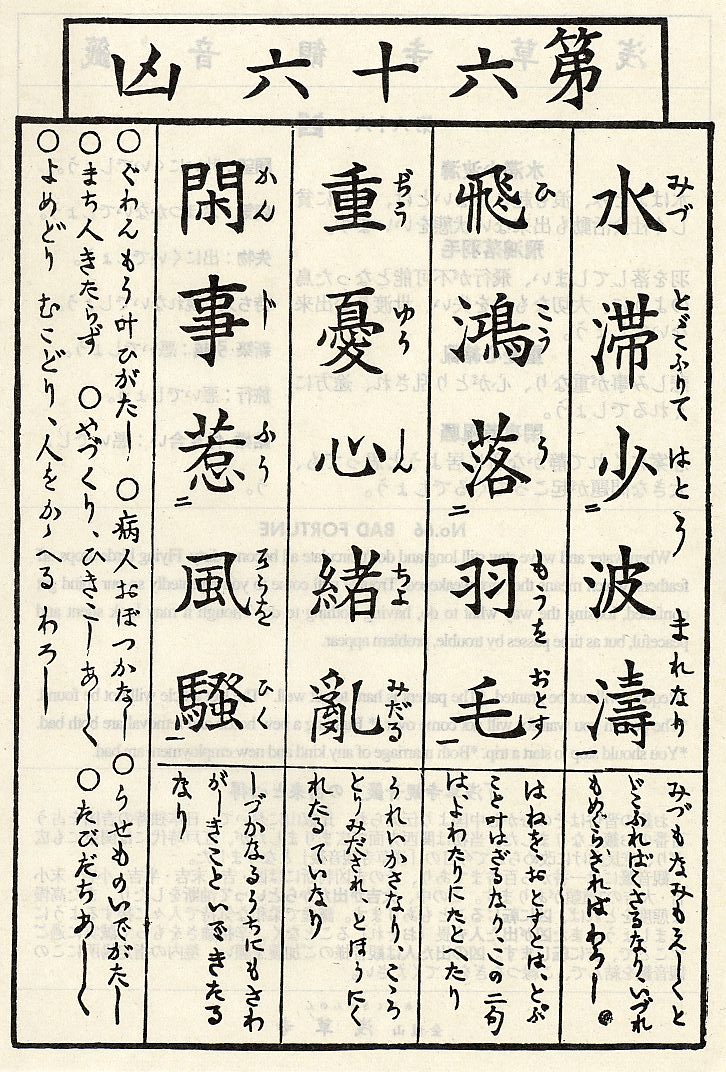 第六十六凶
水滞少波濤
みづ とゞこふりて はとう まれなり
二 一
みづもなみもえーくと
どこふればくさるなり、いづれ
もめぐらざればわろし
飛鴻落羽毛
ひ こう う もうを おとす
二 一
はねをおとすとは、とぶ
こと叶はざるなり、この二句
はよわたりにたとへたり
重憂心緒亂
ぢう ゆう しん ちよ みだる
うれいかさなり、こころ
とりみだされ、とほうにく
れたるていなり
閑事惹風騷
かん じ ふうそうを ひく
二
しづかなるうちにもさわ
がしきこといできたる
なり
〇ぐわんもう叶ひがたし 〇病人おぼつかなし 〇うせものいでがたし
〇まち人きたらず 〇やづくり、ひきこしあしく 〇たびだちあしく
〇よめどり むこどり、人をかゝへるわろし